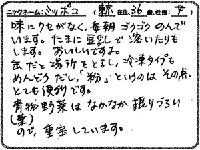 ニックネーム:ミッポコ (東京都在住・36歳・女性)
味にクセがなく、毎朝ゴクゴクのんで
います。たまに豆乳で溶いたりも
します。おいしいですよ。
缶だと場所をとるし、冷凍タイプも
めんどうだし、「粉」というのはその点、
とても便利です。
青物野菜はなかなか摂りづらい
(葉)
ので、重宝しています。